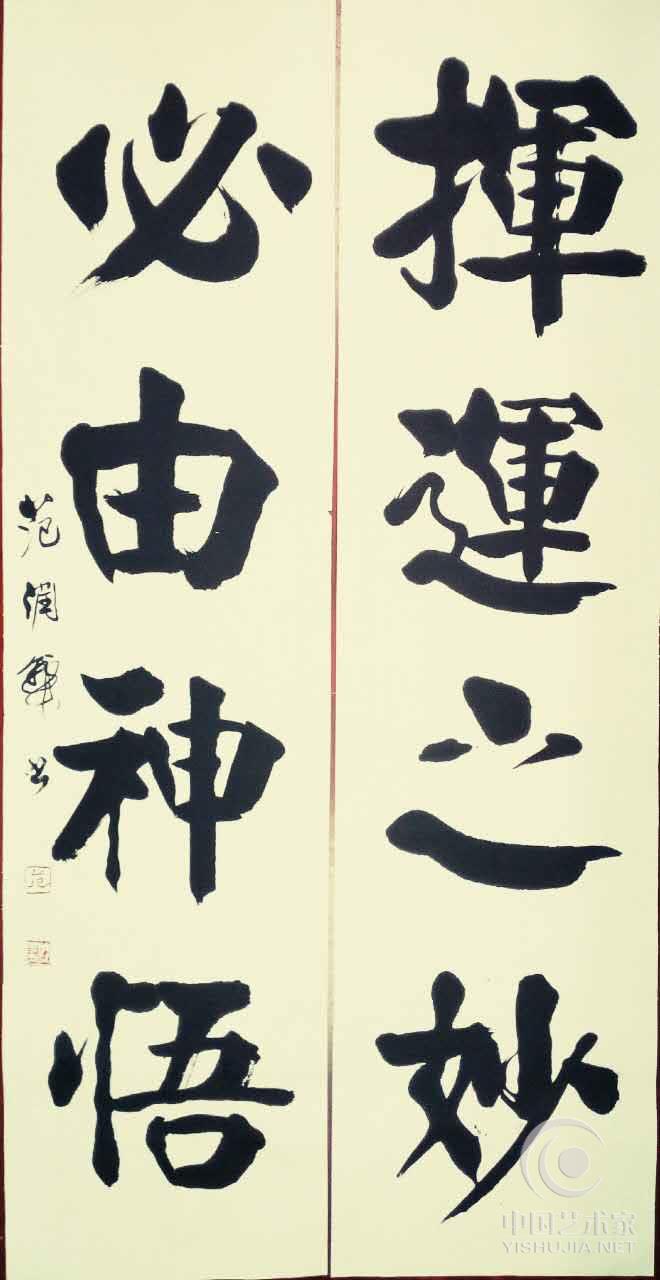 揮運之妙
必由神悟
范润麟书
中国艺术家
YISHUJIA.NET